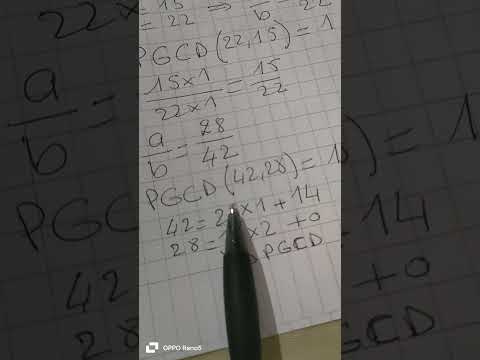 = 15
= 22 ⇒ b = 22
PGCD(22,15) = 1
15×1/22×1 = 15/22
a/b = 28/42
PGCD(42,28) = 1
42 = 2 ×1 + 14
28 = ×2 + 0
PGCD
OPPO Reno5